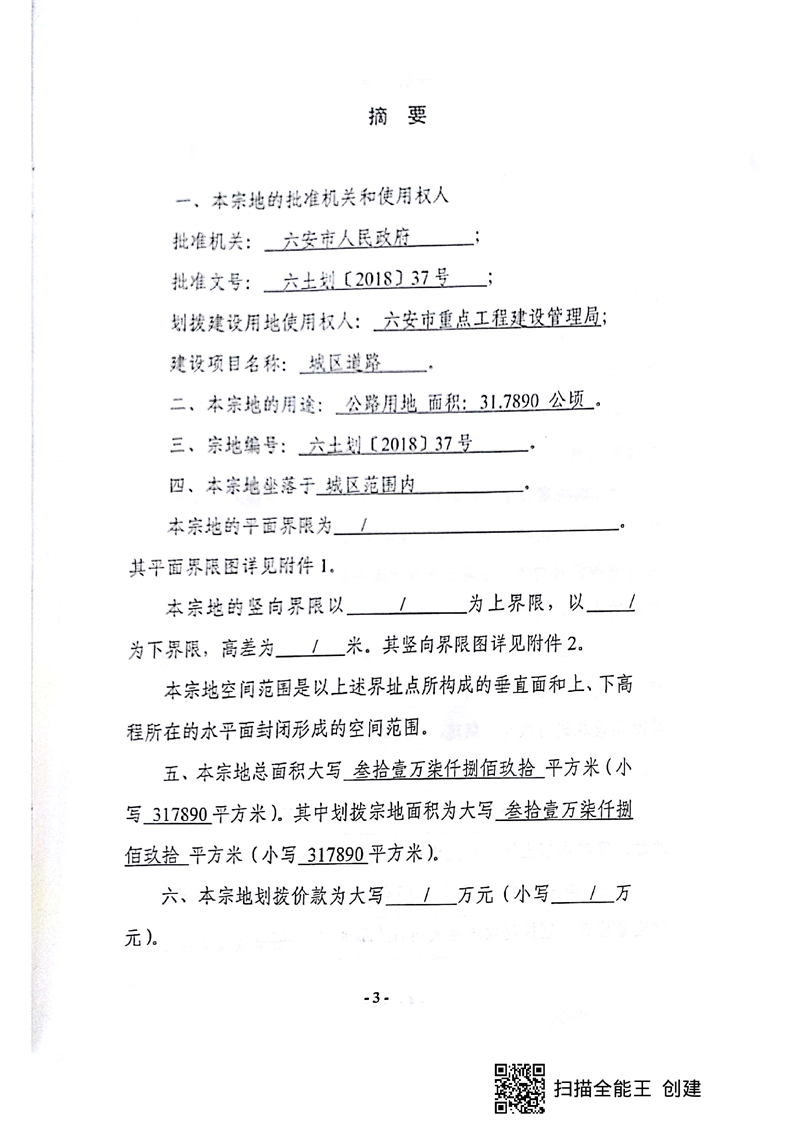 摘 要
一、本宗地的批准机关和使用权人
批准机关： 六安市人民政府 ；
批准文号： 六土划〔2018〕37号 ；
划拨建设用地使用权人： 六安市重点工程建设管理局；
建设项目名称： 城区道路 .
二、本宗地的用途： 公路用地 面积：31.7890 公顷 。
三、宗地编号： 六土划〔2018〕37号 。
四、本宗地坐落于 城区范围内 。
本宗地的平面界限为 / 。
其平面界限图详见附件1。
本宗地的竖向界限以 / 为上界限，以 /
为下界限，高差为 / 米。其竖向界限图详见附件2。
本宗地空间范围是以上述界址点所构成的垂直面和上、下高
程所在的水平面封闭形成的空间范围。
五、本宗地总面积大写 叁拾壹万柒仟捌佰玖拾 平方米（小
写 317890 平方米）。其中划拨宗地面积为大写 叁拾壹万柒仟捌
佰玖拾 平方米（小写 317890 平方米）。
六、本宗地划拨价款为大写 / 万元（小写 / 万
元）。
- 3 -
扫描全能王 创建